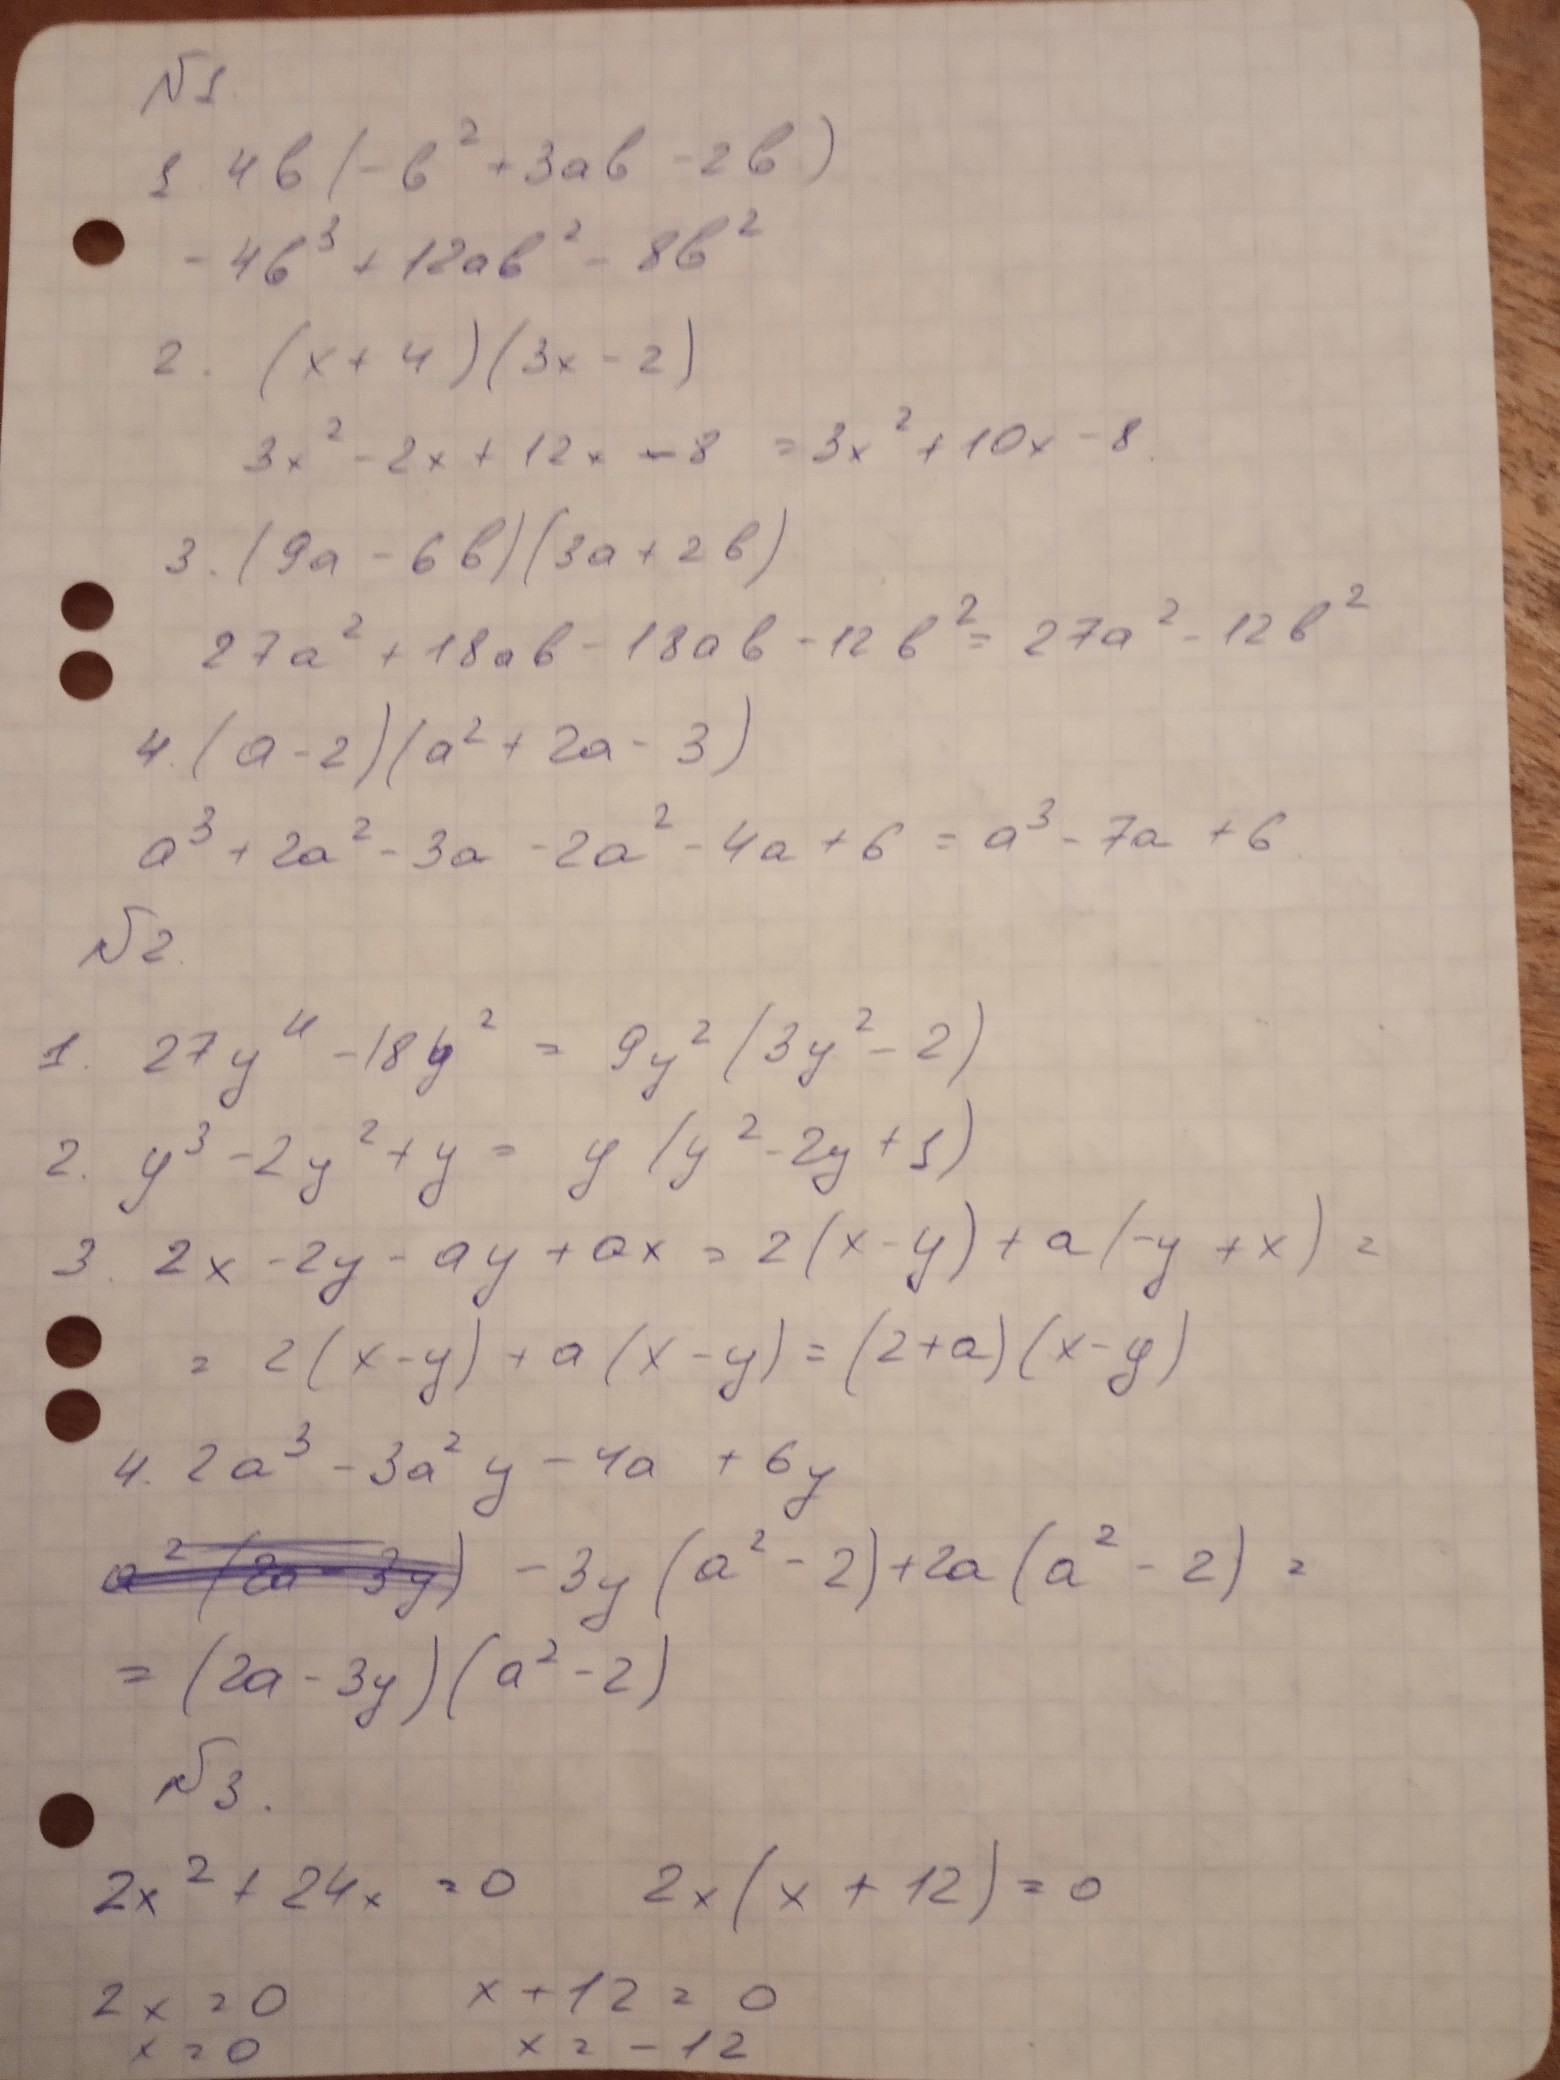 №1
1. 4b(-b²+3ab-2b)
-4b³+12ab²-8b²
2. (x+4)(3x-2)
3x²-2x+12x-8 =3x²+10x-8.
3. (9a-6b)(3a+2b)
27a²+18ab-18ab-12b²=27a²-12b²
4. (a-2)(a²+2a-3)
a³+2a²-3a-2a²-4a+6=a³-7a+6
№2.
1. 27y⁴-18y²=9y²(3y²-2)
2. y³-2y²+y=y(y²-2y+1)
3. 2x-2y-ay+ax=2(x-y)+a(-y+x)=
=2(x-y)+a(x-y)=(2+a)(x-y)
4. 2a³-3a²y-4a+6y
a²(2a-3y) -3y(a²-2)+2a(a²-2)=
=(2a-3y)(a²-2)
№3.
2x²+24x=0 2x(x+12)=0
2x=0 x+12=0
x=0 x=-12